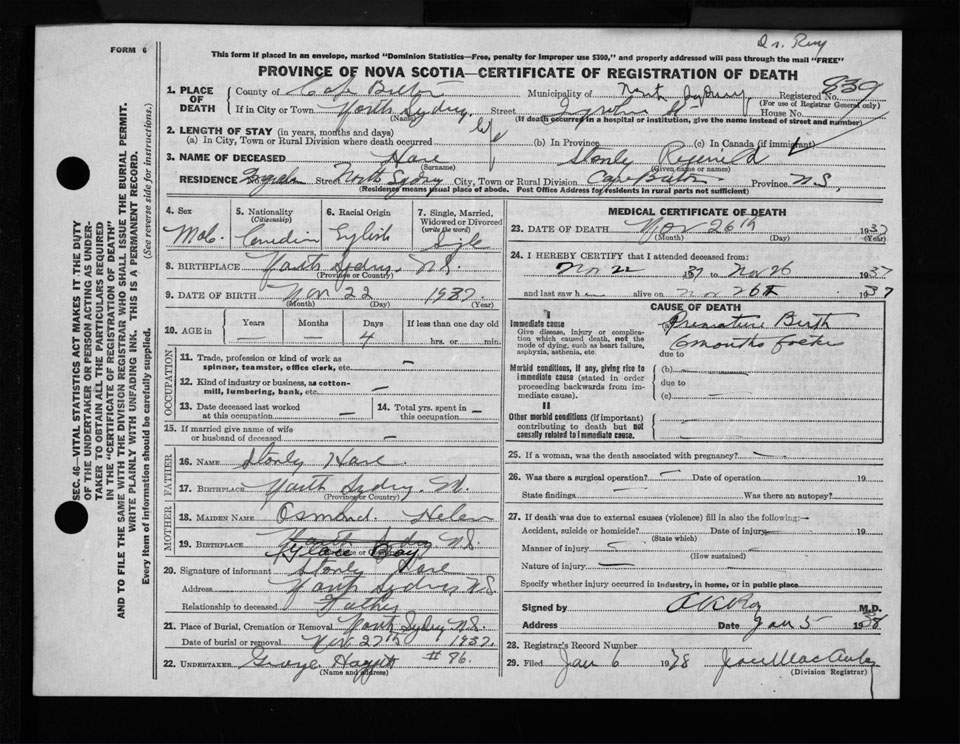 FORM 6
Dr. Roy
This form if placed in an envelope, marked "Dominion Statistics—Free, penalty for improper use $300," and properly addressed will pass through the mail "FREE"
PROVINCE OF NOVA SCOTIA—CERTIFICATE OF REGISTRATION OF DEATH
839
1. PLACE OF DEATH
County of Cape Breton Municipality of North Sydney Registered No.
(For use of Registrar General only)
If in City or Town North Sydney Street House No.
(Name) (If death occurred in a hospital or institution, give the name instead of street and number)
2. LENGTH OF STAY (in years, months and days)
(a) In City, Town or Rural Division where death occurred life (b) In Province (c) In Canada (if immigrant)
3. NAME OF DECEASED Hare Stanly
(Surname) (Given name or names)
RESIDENCE Street North Sydney City, Town or Rural Division Cape Breton Province N.S.
(Residence means usual place of abode. Post Office Address for residents in rural parts not sufficient)
4. Sex
5. Nationality
(Citizenship)
6. Racial Origin
7. Single, Married, Widowed or Divorced
(write the word)
Male Canadian English Single
8. BIRTHPLACE North Sydney. N.S.
(Province or Country)
9. DATE OF BIRTH Nov 22 1937
(Month) (Day) (Year)
10. AGE in Years Months Days If less than one day old
— — 4 hrs. or min.
OCCUPATION
11. Trade, profession or kind of work as spinner, teamster, office clerk, etc. —
12. Kind of industry or business, as cotton-mill, lumbering, bank, etc. —
13. Date deceased last worked at this occupation —
14. Total yrs. spent in this occupation —
15. If married give name of wife or husband of deceased —
FATHER
16. NAME Stanly Hare
17. BIRTHPLACE North Sydney. N.
(Province or Country)
MOTHER
18. MAIDEN NAME Osmond. Helen
19. BIRTHPLACE Glace Bay N.S.
20. Signature of informant Stanly Hare
Address North Sydney N.S.
Relationship to deceased Father
21. Place of Burial, Cremation or Removal North Sydney N.S.
Date of burial or removal Nov. 27th 1937.
22. UNDERTAKER George # 86.
(Name and address)
MEDICAL CERTIFICATE OF DEATH
23. DATE OF DEATH Nov 26th 1937
(Month) (Day) (Year)
24. I HEREBY CERTIFY that I attended deceased from:
Nov 22 37 to Nov 26 1937
and last saw h alive on Nov 26th 1937
CAUSE OF DEATH
I
Immediate cause
Give disease, injury or complication which caused death, not the mode of dying, such as heart failure, asphyxia, asthenia, etc.
(a) Premature Birth
6 months
due to
Morbid conditions, if any, giving rise to immediate cause (stated in order proceeding backwards from immediate cause).
(b)
due to
(c) —
II
Other morbid conditions (if important) contributing to death but not causally related to immediate cause.
25. If a woman, was the death associated with pregnancy? —
26. Was there a surgical operation? — Date of operation 19
State findings — Was there an autopsy?
27. If death was due to external causes (violence) fill in also the following:—
Accident, suicide or homicide? Date of injury 19
(State which)
Manner of injury —
(How sustained)
Nature of injury —
Specify whether injury occurred in industry, in home, or in public place
Signed by M.D.
Address Date Jan 5 1938
28. Registrar's Record Number
29. Filed Jan 6 1938
(Division Registrar)
SEC. 46—VITAL STATISTICS ACT MAKES IT THE DUTY
OF THE UNDERTAKER OR PERSON ACTING AS UNDER-
TAKER TO OBTAIN ALL THE PARTICULARS REQUIRED
IN THE "CERTIFICATE OF REGISTRATION OF DEATH"
AND TO FILE THE SAME WITH THE DIVISION REGISTRAR WHO SHALL ISSUE THE BURIAL PERMIT.
WRITE PLAINLY WITH UNFADING INK. THIS IS A PERMANENT RECORD.
Every item of information should be carefully supplied. (See reverse side for instructions.)